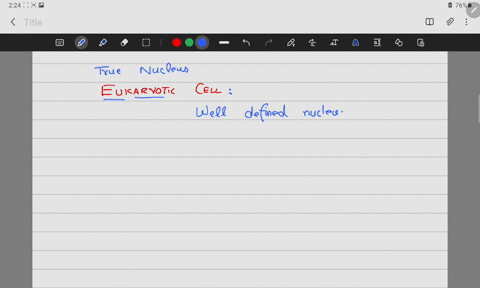 2:24
76%
Title
True Nucleus
EUKARYOTIC CELL:
Well defined nucleus.